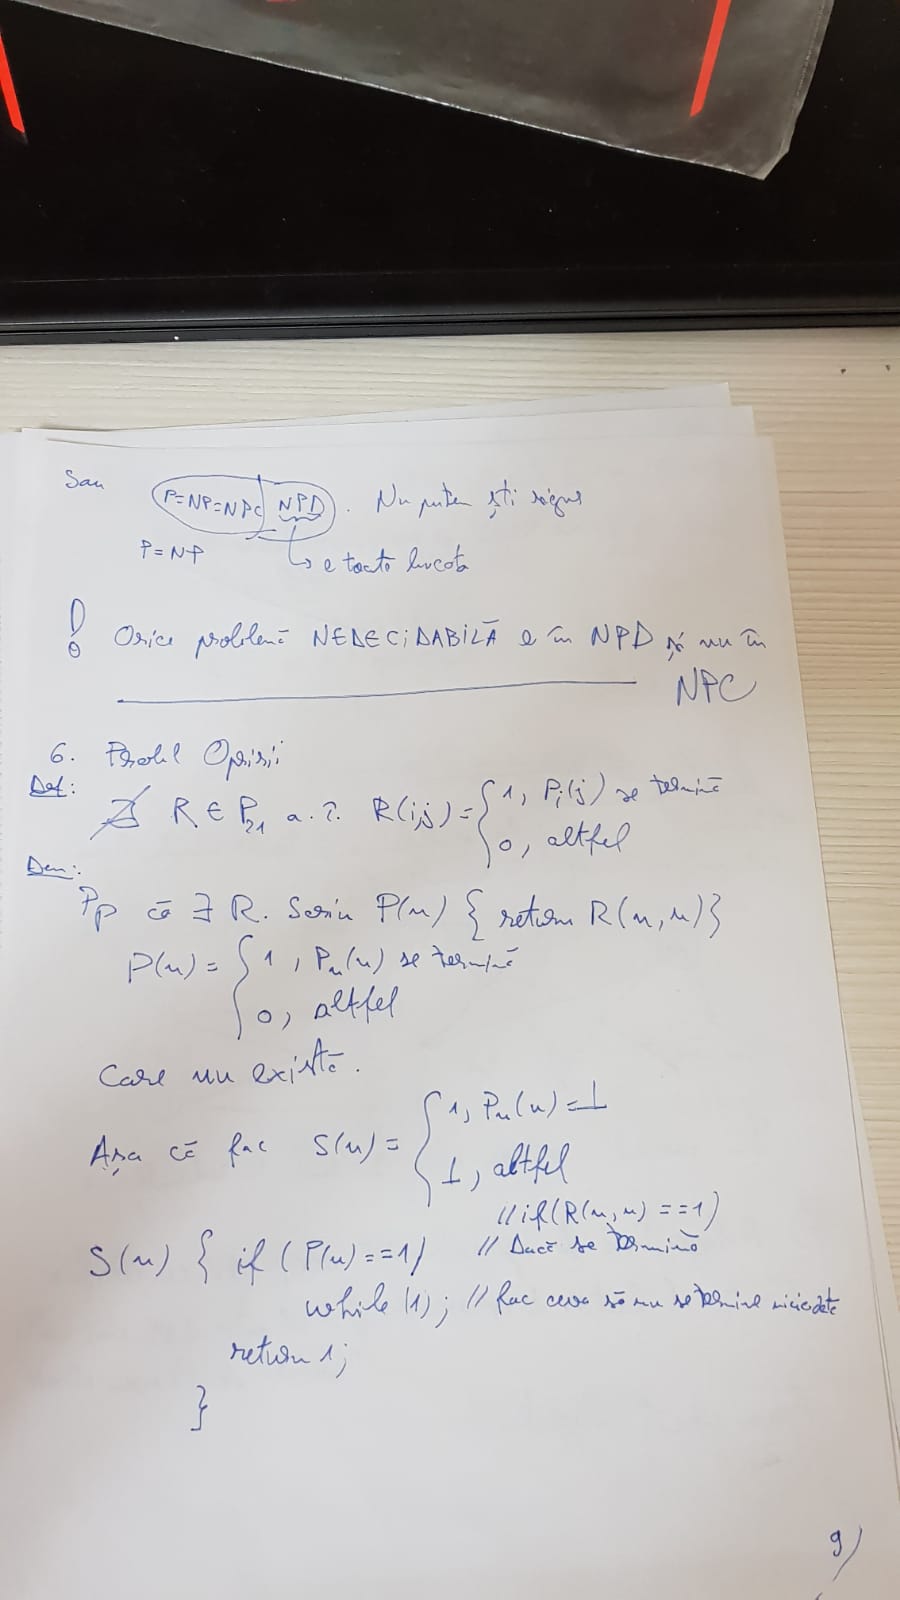 Sau P=NP=NPC NPD. Nu putem ști sigur
P=NP
↳ e toată lucata
! Orice problemă NEDECIDABILĂ e în NPD și nu în
NPC
6. Probl Opririi
Def:
∄ R ∈ P₂₁ a.î. R(i,j) = { 1, Pᵢ(j) se termină
0, altfel
Dem:
Pp că ∃ R. Scriu P(n) { return R(n,n)}
P(n) = { 1, Pₙ(n) se termină
0, altfel
Care nu există.
Așa că fac S(n) = { 1, Pₙ(n)=⊥
⊥, altfel
// if(R(n,n)==1)
S(n) { if (P(n)==1) // Dacă se termină
while(1); // fac ceva să nu se termine niciodată
return 1;
}
9)